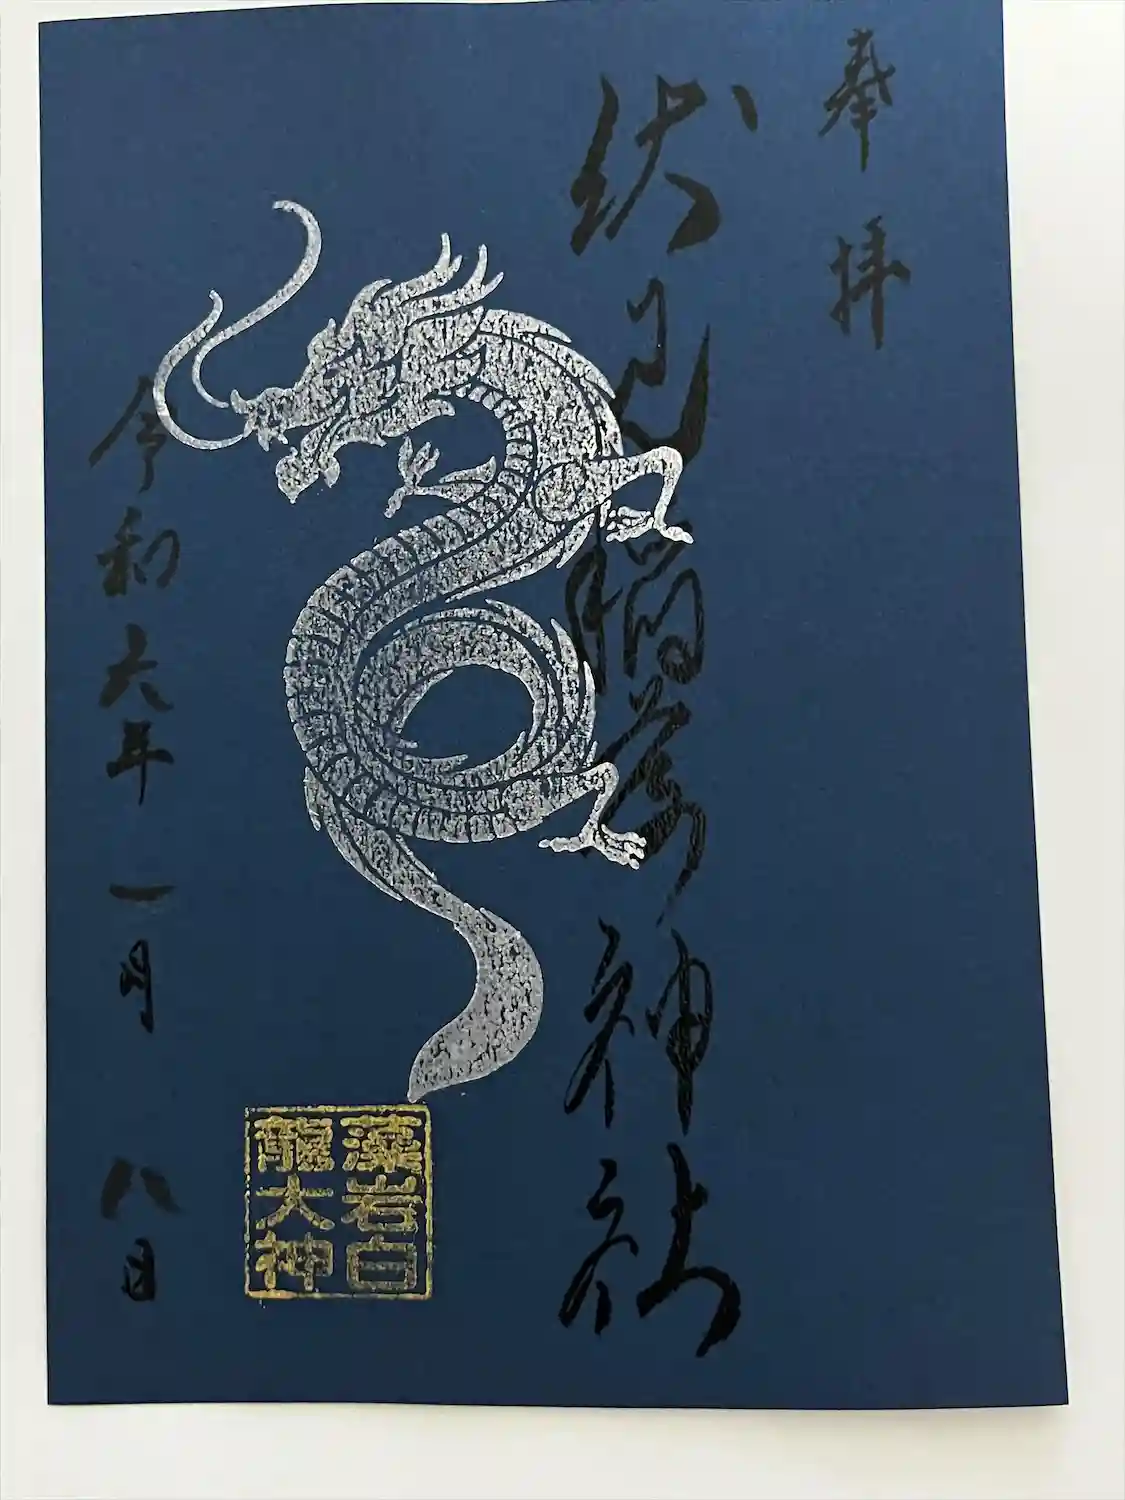 奉拝
伏見稲荷神社
藻岩白
龍大神
令和六年一月八日